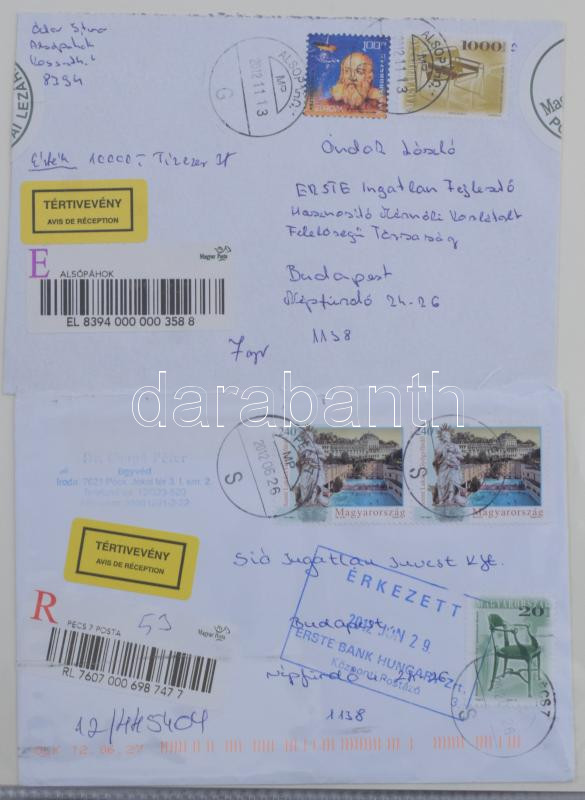 Alsópáhok
8394
ALSÓPÁHOK
2012 11 13
MP
G
100
EUROPA
1000
Érték 10000 - Tízezer Ft
TÉRTIVEVÉNY
AVIS DE RÉCEPTION
E
Magyar Posta
ALSÓPÁHOK
EL 8394 000 000 358 8
László
ERSTE Ingatlan Fejlesztő
Hasznosító Korlátolt
Felelősségű Társaság
Budapest
Népfürdő 24-26
1138
darabanth
Ügyvéd
Iroda: 7621 Pécs, Jókai tér 3. I. em. 2.
TÉRTIVEVÉNY
AVIS DE RÉCEPTION
R
PÉCS 7 POSTA
53
Magyar Posta
RL 7607 000 698 747 7
12/HH5404
OSK 12.06.27
MP
2012 06 26
S
240
Magyarország
240
Magyarország
S
Sió Ingatlan Invest Kft.
Budapest
Népfürdő 24-26
1138
ÉRKEZETT
2012 JÚN 29.
ERSTE BANK HUNGARY Zrt.
Központi Postázó
3.
MAGYARORSZÁG
20
PÉCS 7
S